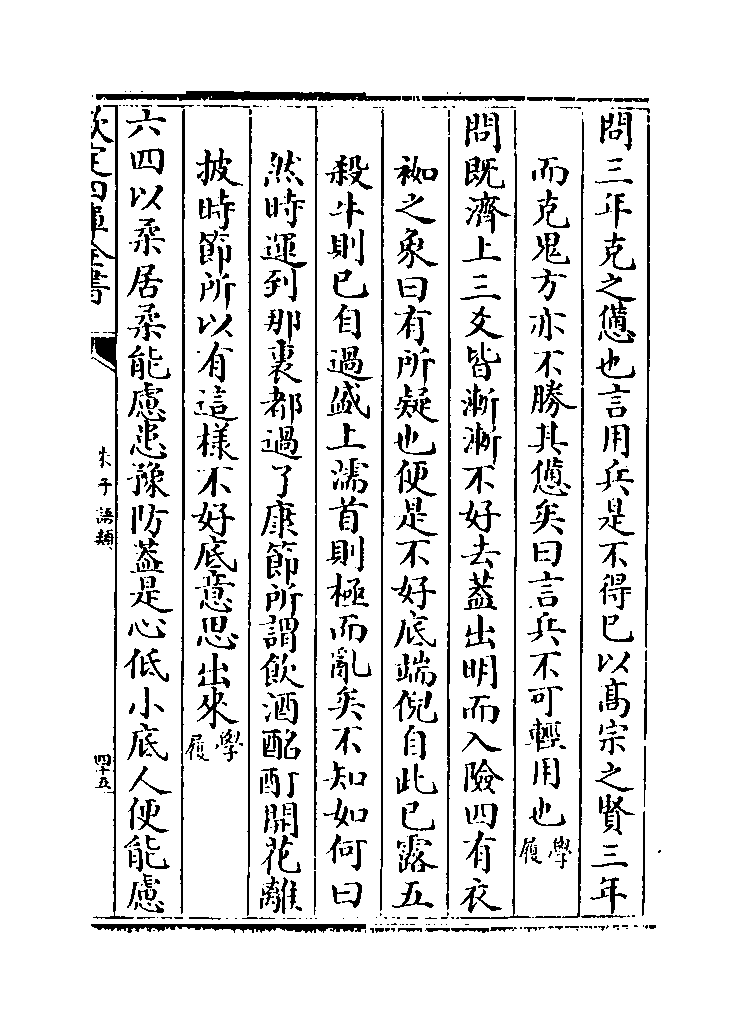 問三年克之憊也言用兵是不得已以髙宗之賢三年
而克鬼方亦不勝其憊矣曰言兵不可輕用也學履
問既濟上三爻皆漸漸不好去葢出明而入險四有衣
袽之象曰有所疑也便是不好底端倪自此已露五
殺牛則已自過盛上濡首則極而亂矣不知如何曰
然時運到那裏都過了康節所謂飲酒酩酊開花離
披時節所以有這様不好底意思出來學履
六四以柔居柔能慮患豫防葢是心低小底人便能慮
欽定四庫全書
朱子語類
四十五